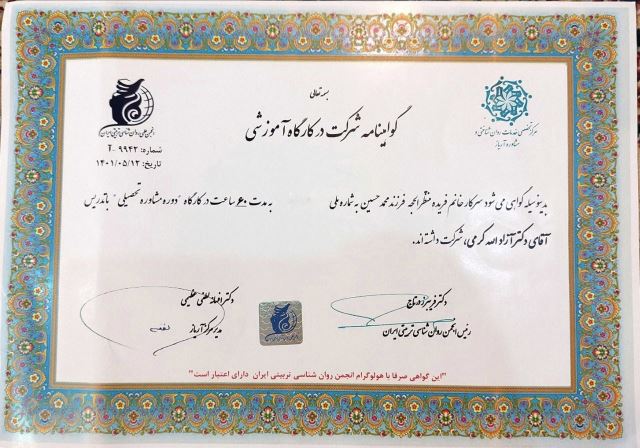 بسمه تعالی
گواهینامه شرکت در کارگاه آموزشی
انجمن علمی روان شناسی تربیتی ایران
شماره: ۹۹۴۲-آ
تاریخ: ۱۴۰۱/۰۵/۱۲
مرکز تخصصی خدمات روان شناختی و
مشاوره آریاز
بدینوسیله گواهی می شود سرکار خانم فریده منظرالحجه فرزند محمد حسین به شماره ملی به مدت ۶۰ ساعت در کارگاه "دوره مشاوره تحصیلی" با تدریس
آقای دکتر آزاد الله کرمی، شرکت داشته اند.
دکتر فریبرز درتاج
رئیس انجمن روان شناسی تربیتی ایران
دکتر افسانه لطفی عظیمی
مدیر مرکز آریاز
"این گواهی صرفا با هولوگرام انجمن روان شناسی تربیتی ایران دارای اعتبار است"